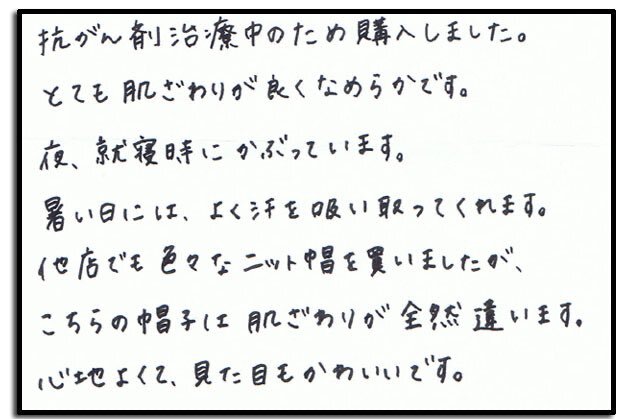 抗がん剤治療中のため購入しました。
とても肌ざわりが良くなめらかです。
夜、就寝時にかぶっています。
暑い日には、よく汗を吸い取ってくれます。
他店でも色々なニット帽を買いましたが、
こちらの帽子は肌ざわりが全然違います。
心地よくて、見た目もかわいいです。